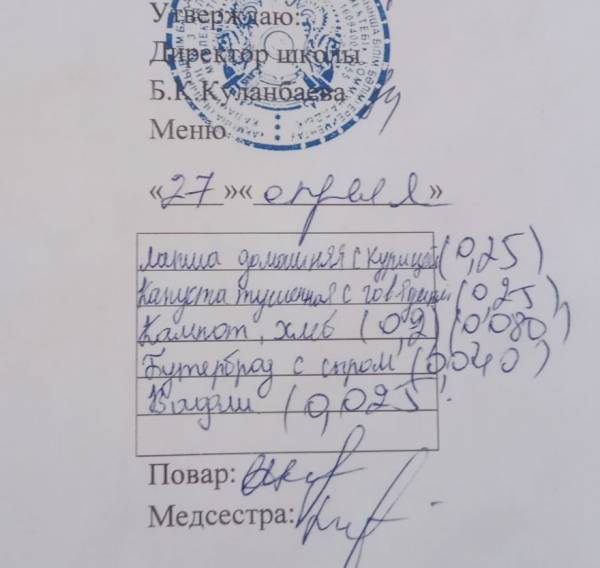 Утверждаю:
Директор школы
Б.К.Куланбаева
Меню
«27»« апреля »
лапша домашняя с курицей (0,25)
Капуста тушенная с говядиной (0,25),
Кампот, хлеб (0,2) (0,080)
Бутерброд с сыром (0,040)
Вафли (0,025.
Повар:
Медсестра: